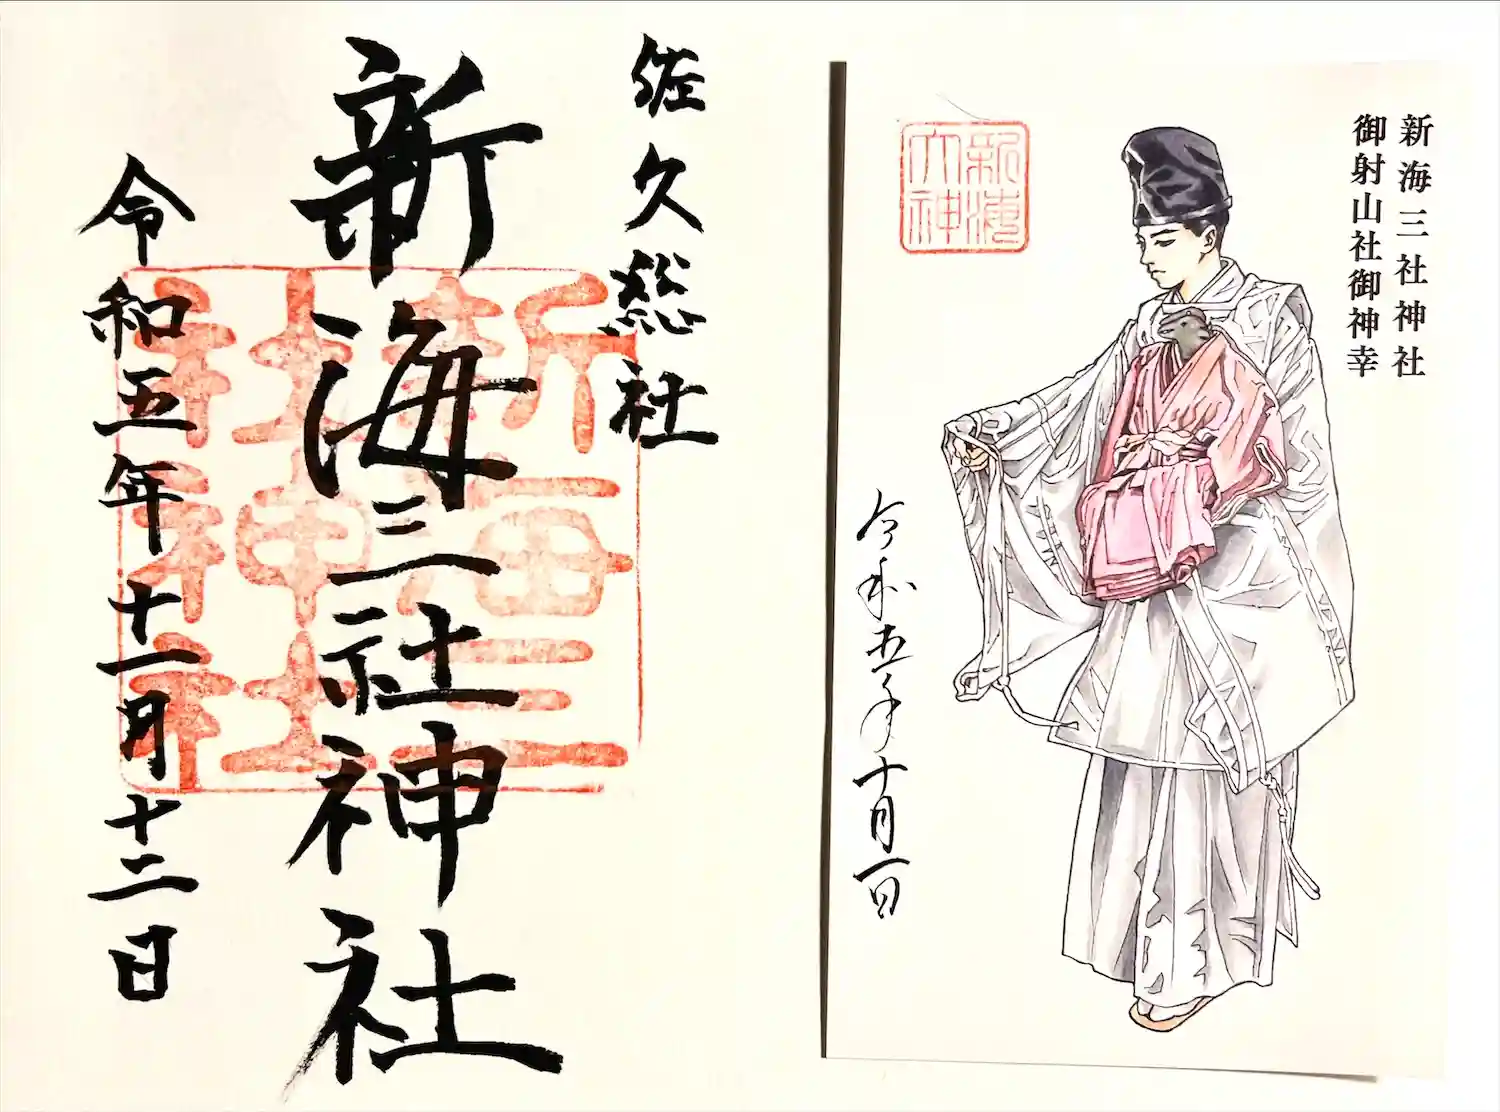 佐久総社
新海三社神社
令和五年十一月十二日
新海三社神社
社神社
新海三社神社
御射山社御神幸
新海
大神
令和五年十月一日